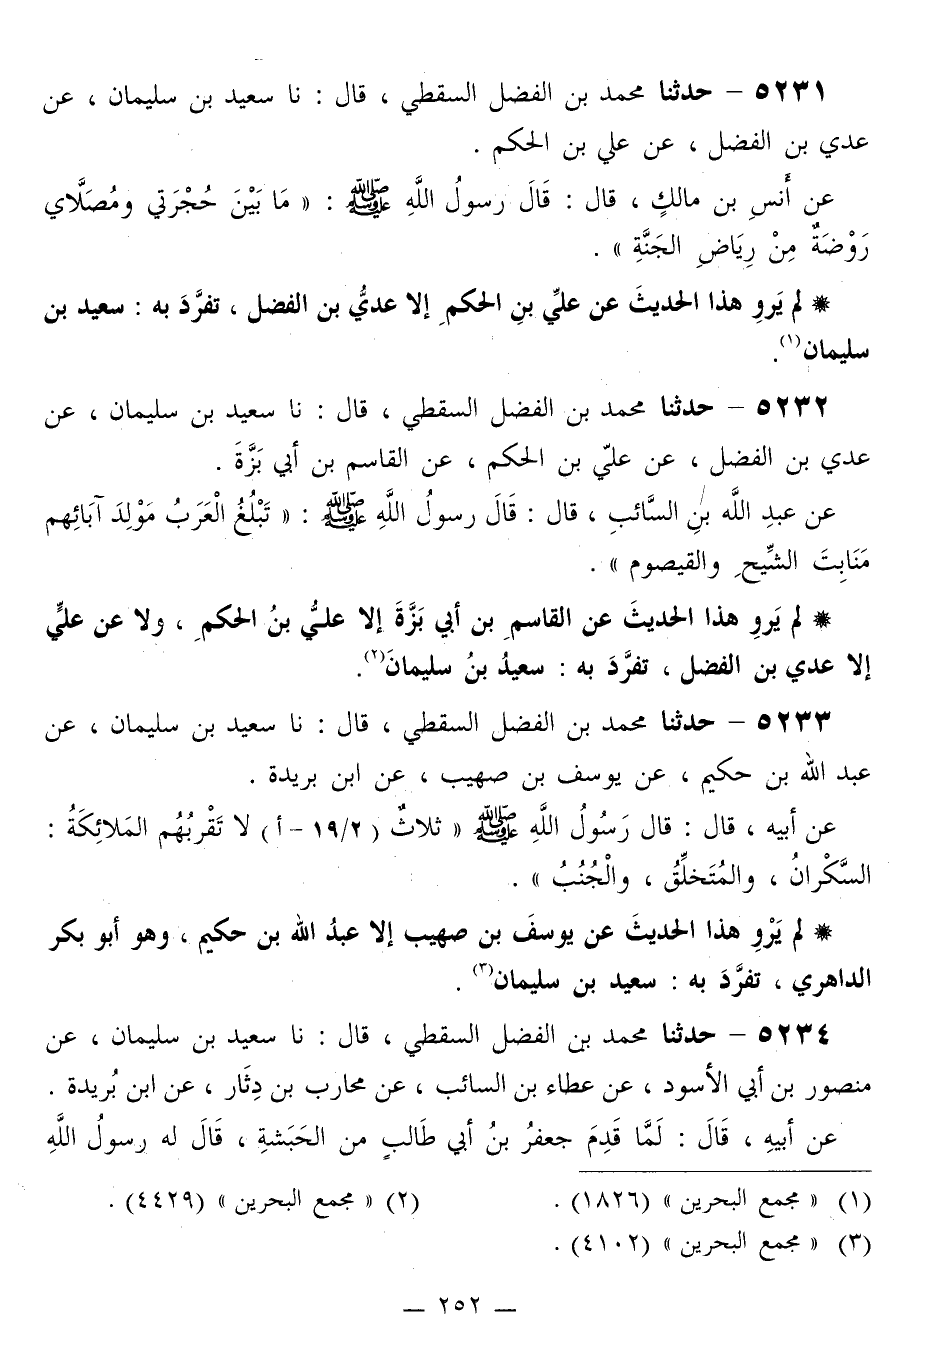 ٥٢٣١ – حدثنا محمد بن الفضل السقطي ، قال : نا سعيد بن سليمان ، عن
عدي بن الفضل ، عن علي بن الحكم .
عن أَنسِ بن مالكٍ ، قال : قَالَ رسولُ اللَّهِ ﷺ : « مَا بَيْنَ حُجْرَتي ومُصَلَّاي
رَوْضَةٌ مِنْ رِيَاضِ الجَنَّةِ » .
* لم يَروِ هذا الحديثَ عن عليِّ بنِ الحكمِ إلا عديُّ بن الفضل ، تفرَّدَ به : سعيد بن
سليمان(١).
٥٢٣٢ – حدثنا محمد بن الفضل السقطي ، قال : نا سعيد بن سليمان ، عن
عدي بن الفضل ، عن عليّ بن الحكم ، عن القاسم بن أبي بَزَّةَ .
عن عبدِ اللَّه بنِ السَّائبِ ، قال : قَالَ رسولُ اللَّهِ ﷺ : « تَبْلُغُ الْعَرَبُ مَوْلِدَ آبَائِهم
مَنَابِتَ الشِّيحِ والقيصوم » .
* لم يَروِ هذا الحديثَ عن القاسمِ بن أبي بَزَّةَ إلا عليُّ بنُ الحكمِ ، ولا عن عليٍّ
إلا عدي بن الفضل ، تفرَّدَ به : سعيدُ بنُ سليمانَ(٢).
٥٢٣٣ – حدثنا محمد بن الفضل السقطي ، قال : نا سعيد بن سليمان ، عن
عبد الله بن حكيم ، عن يوسف بن صهيب ، عن ابن بريدة .
عن أبيه ، قال : قال رَسُولُ اللَّهِ ﷺ « ثلاثٌ ( ١٩/٢ – أ ) لا تَقْربُهُم المَلائِكَةُ :
السَّكْرانُ ، والمُتَخلِّقُ ، والْجُنُبُ » .
* لم يَرْوِ هذا الحديثَ عن يوسفَ بن صهيب إلا عبدُ الله بن حكيم ، وهو أبو بكر
الداهري ، تفرَّدَ به : سعيد بن سليمان(٣) .
٥٢٣٤ – حدثنا محمد بن الفضل السقطي ، قال : نا سعيد بن سليمان ، عن
منصور بن أبي الأسود ، عن عطاء بن السائب ، عن محارب بن دِثَار ، عن ابن بُريدة .
عن أبيهِ ، قَالَ : لَمَّا قَدِمَ جعفرُ بنُ أبي طَالبٍ من الحَبَشةِ ، قَالَ له رسولُ اللَّهِ
(١) « مجمع البحرين » (١٨٢٦) . (٢) « مجمع البحرين » (٤٤٢٩) .
(٣) « مجمع البحرين » (٤١٠٢) .
— ٢٥٢ —